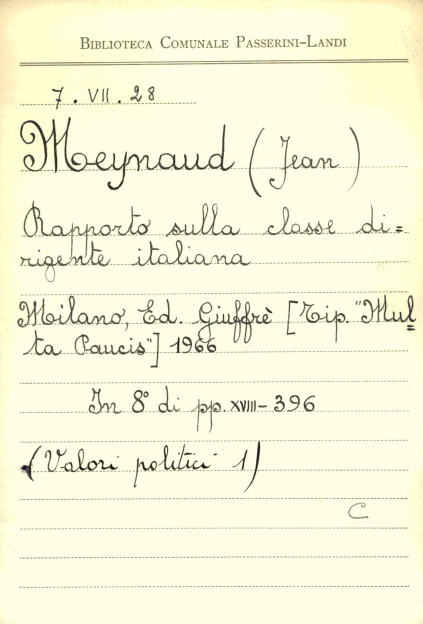 BIBLIOTECA COMUNALE PASSERINI-LANDI
7. VII. 28
Meynaud (Jean)
Rapporto sulla classe di=
rigente italiana
Milano, Ed. Giuffrè [Tip. "Mul=
ta Paucis"] 1966
In 8° di pp. XVIII-396
(Valori politici 1)
C